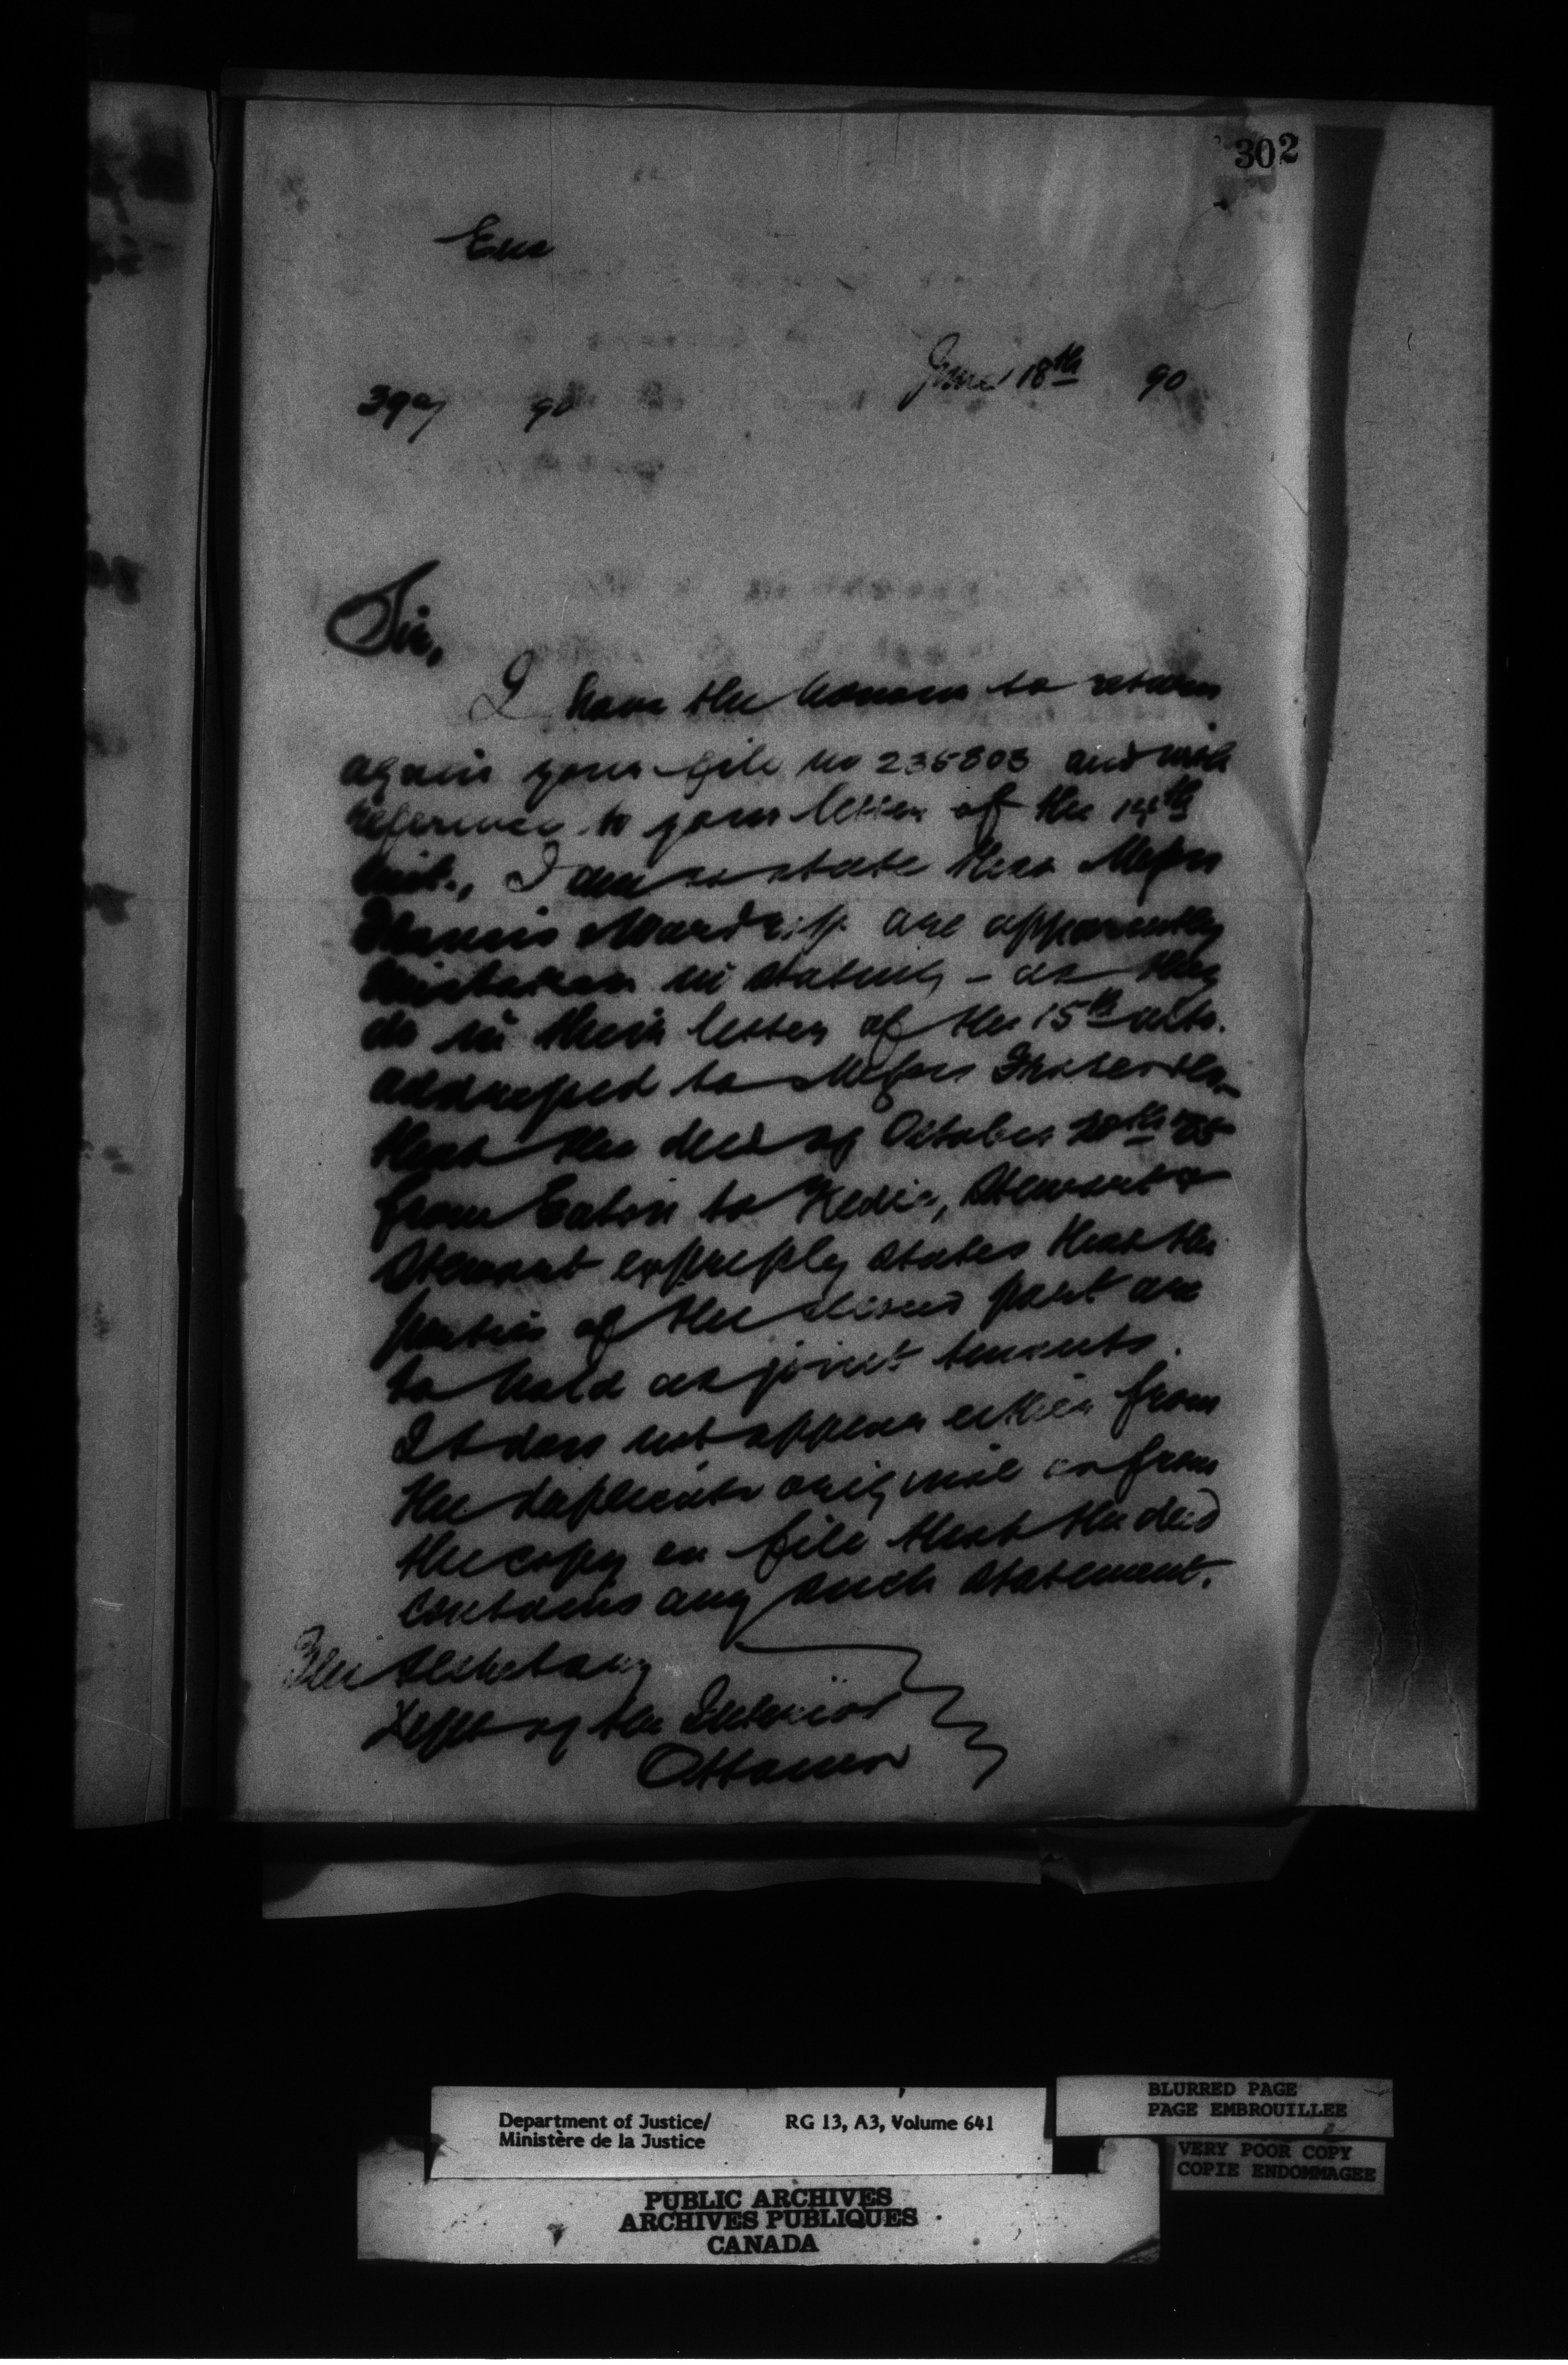 302
Enc
June 18th 90
399 90
Sir,
I have the honour to return
again your file no 236803 and with
reference to your letter of the 14th
inst., I am to state that Messrs
are apparently
mistaken in stating – as they
do in their letter of the 15th ulto.
addressed to Messrs
that the deed of October 20th '85
from Eaton to Kedie, Stewart &
Stewart expressly states that the
parties of the second part are
to hold as joint tenants.
It does not appear either from
the duplicate original or from
the copy on file that the deed
contains any such statement.
The Secretary
Dept of the Interior
Ottawa
Department of Justice/
Ministère de la Justice
RG 13, A3, Volume 641
BLURRED PAGE
PAGE EMBROUILLEE
VERY POOR COPY
COPIE ENDOMMAGEE
PUBLIC ARCHIVES
ARCHIVES PUBLIQUES
CANADA